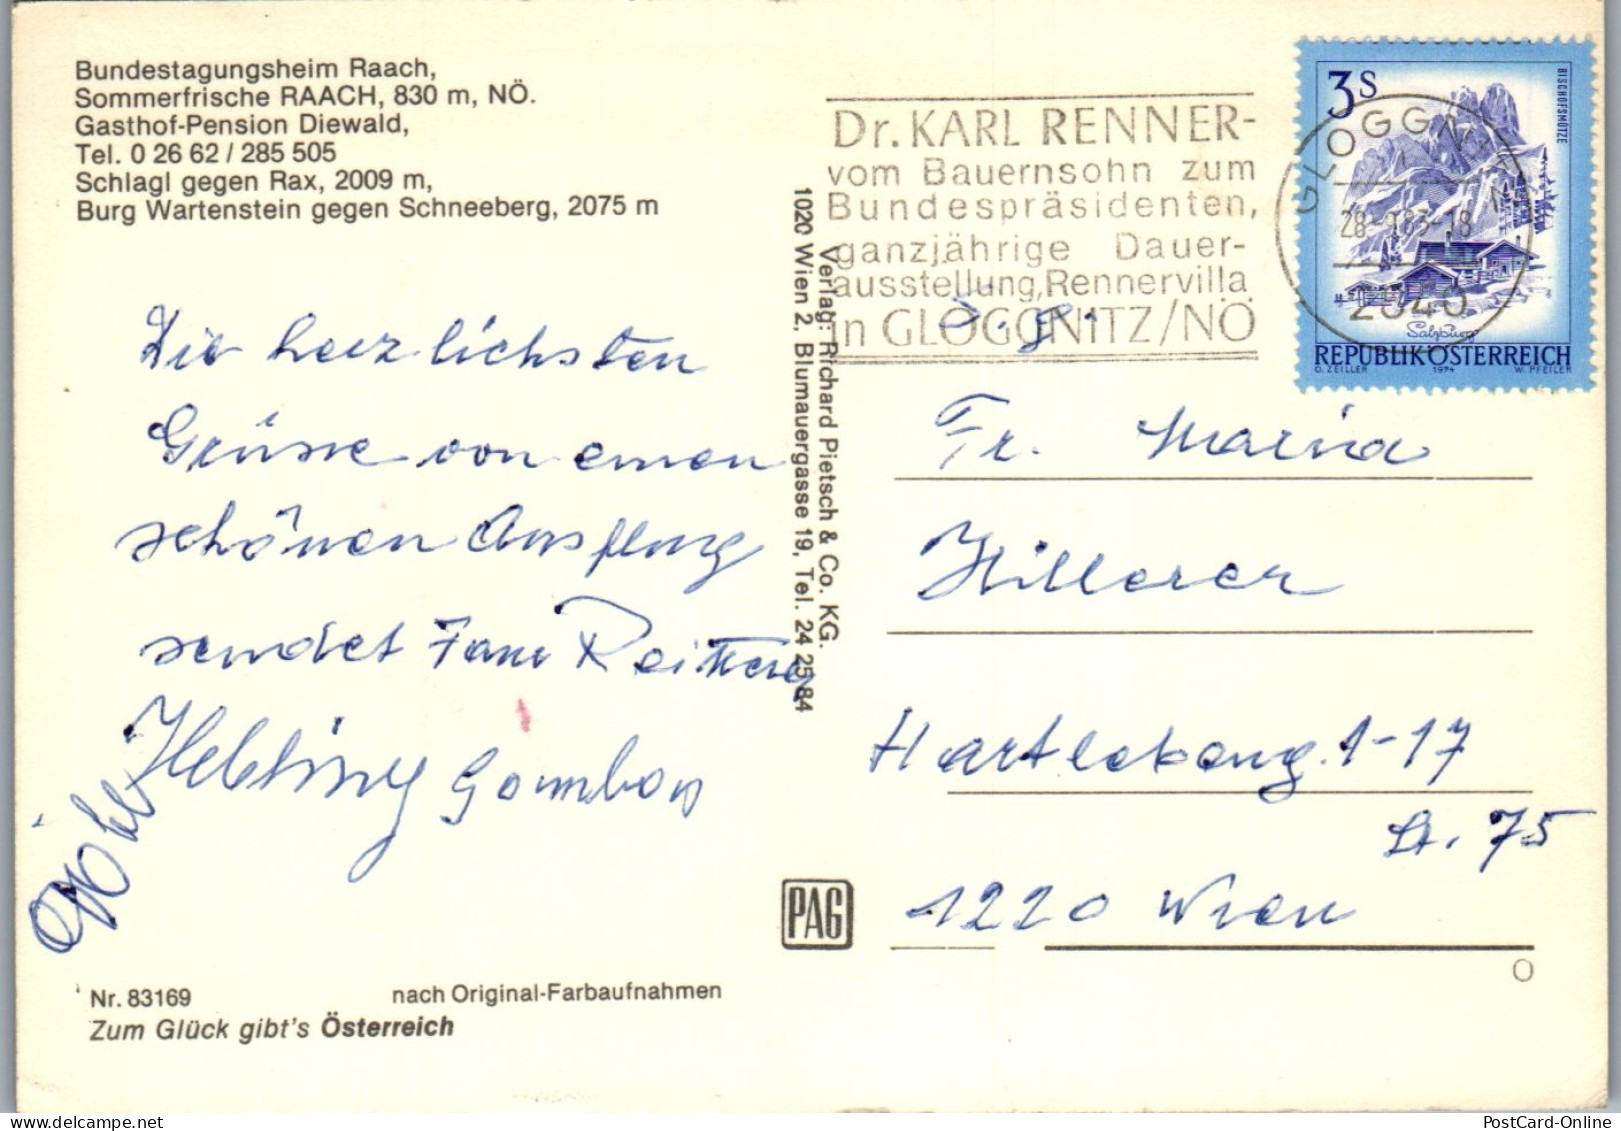 Bundestagungsheim Raach,
Sommerfrische RAACH, 830 m, NÖ.
Gasthof-Pension Diewald,
Tel. 0 26 62 / 285 505
Schlagl gegen Rax, 2009 m,
Burg Wartenstein gegen Schneeberg, 2075 m
Die herzlichsten
Grüsse von einen
schönen Ausflug
sendet Fam Reitterer
Nr. 83169
nach Original-Farbaufnahmen
Zum Glück gibt's Österreich
Verlag: Richard Pietsch & Co. KG.
1020 Wien 2, Blumauergasse 19, Tel. 24 25 84
PAG
Dr. KARL RENNER-
vom Bauernsohn zum
Bundespräsidenten,
ganzjährige Dauer-
ausstellung, Rennervilla
in GLOGGNITZ/NÖ
3S
BISCHOFSMÜTZE
Salzburg
REPUBLIK ÖSTERREICH
O. ZEILER 1974 W. PFEILER
GLOGGNITZ
2640
Fr. Maria
Hillerer
Hartlebeng. 1-17
St. 75
1220 Wien
PostCard-Online